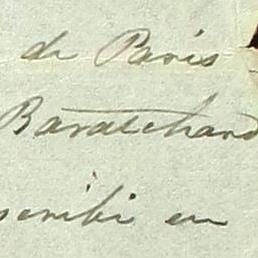 de Paris
Baratchand
scribi en